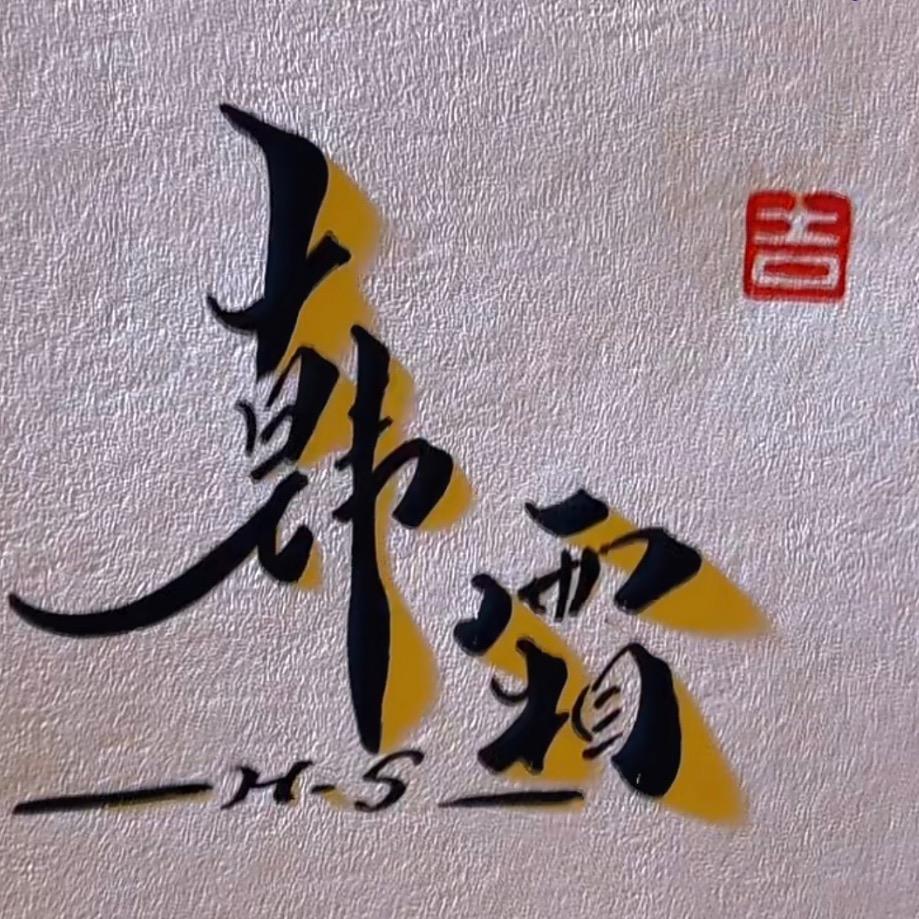 韩霜
H-S
吉